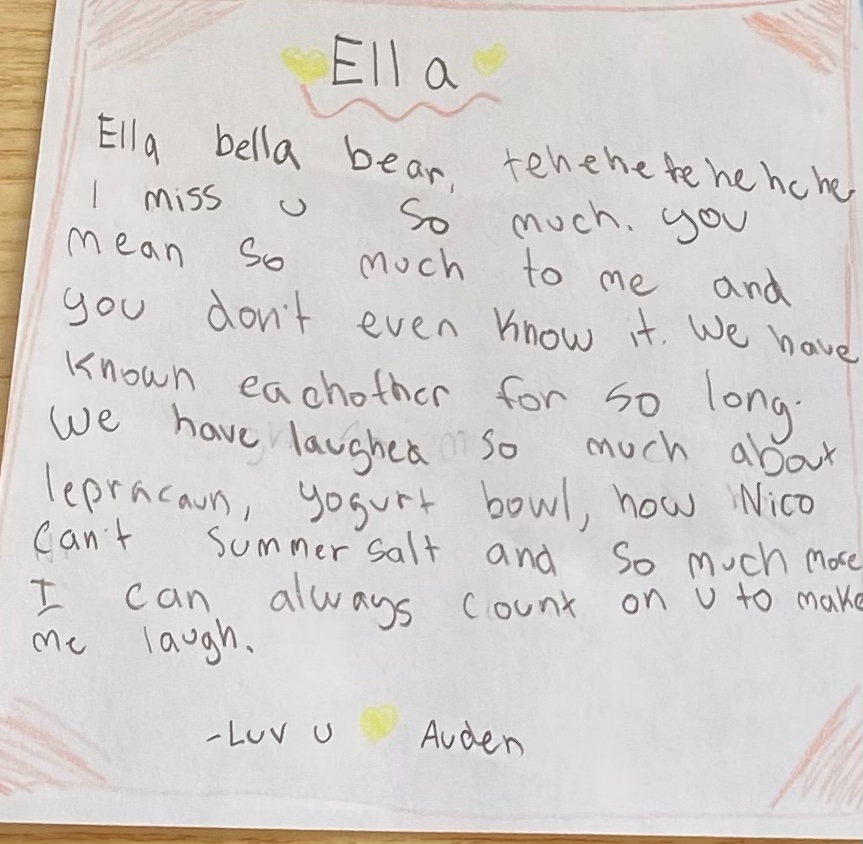 Ella
Ella bella bear, tehehe te he he he
I miss u so much. you
mean so much to me and
you don't even know it. We have
known eachother for so long.
We have laughed so much about
lepracaun, yogurt bowl, how Nico
can't summer salt and so much more
I can always count on u to make
me laugh.
-Luv u Auden